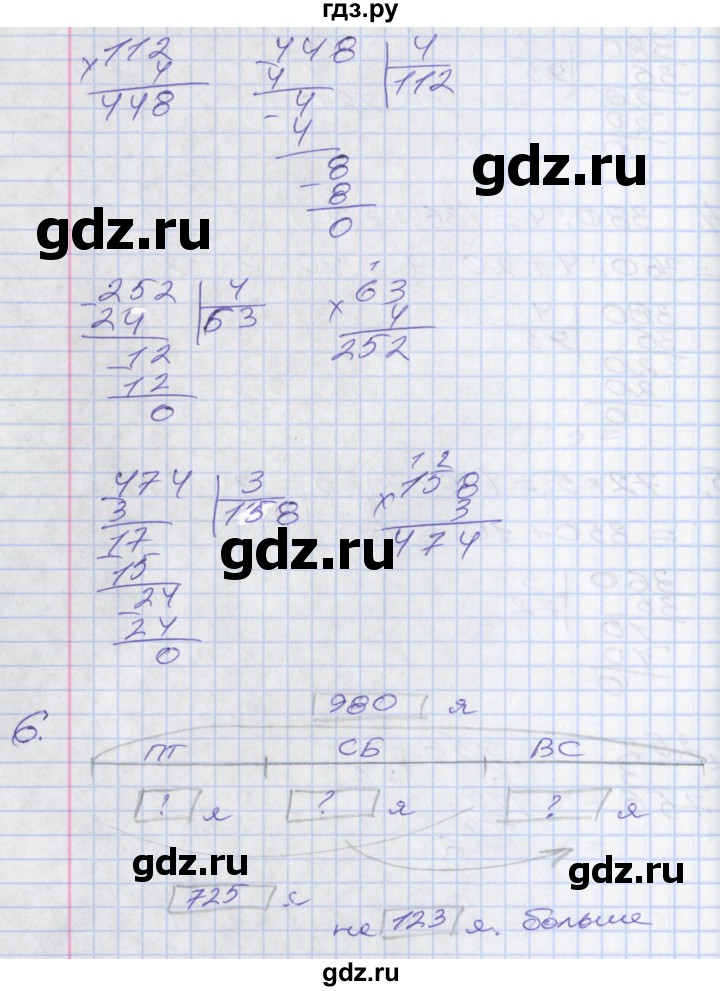 гдз.ру
112
× 4
448
- 448 | 4
4 112
- 4
4
- 8
8
0
gdz.ru
gdz.ru
- 252 | 4
24 63
- 12
12
0
1
63
× 4
252
474 | 3
3 158
17
15
- 24
24
0
12
158
× 3
474
gdz.ru
6.
980 я
ПТ СБ ВС
? я ? я ? я
gdz.ru
gdz.ru
725 я
на 123 я. больше
gdz.ru